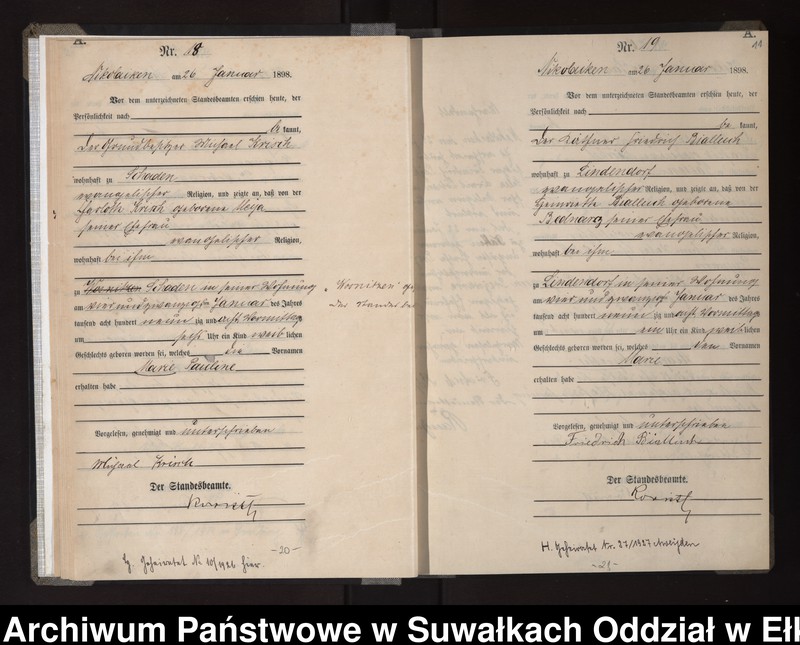 A.
Nr. 18
Nikolaiken am 26 Januar 1898.
Vor dem unterzeichneten Standesbeamten erschien heute, der
Persönlichkeit nach
be kannt,
der Grundbesitzer Michael Krisch
wohnhaft zu Schaden
evangelischer Religion, und zeigte an, daß von der
Krisch geborene
seiner Ehefrau
evangelischer Religion,
wohnhaft bei ihm
zu Schaden in seiner Wohnung
am vier und zwanzigsten Januar des Jahres
tausend acht hundert neun zig und acht Vormittags
um Uhr ein Kind weiblichen
Geschlechts geboren worden sei, welches die Vornamen
Marie Pauline
erhalten habe
Vorgelesen, genehmigt und unterschrieben
Michael Krisch
Der Standesbeamte.
Geheiratet N 10/1926 hier.
-20-
A.
Nr. 19
Nikolaiken am 26 Januar 1898.
Vor dem unterzeichneten Standesbeamten erschien heute, der
Persönlichkeit nach
be kannt,
der Käthner Friedrich
wohnhaft zu Lindendorf
evangelischer Religion, und zeigte an, daß von der
Henriette geborene
Bednarz seiner Ehefrau
evangelischer Religion,
wohnhaft bei ihm
zu Lindendorf in seiner Wohnung
am vier und zwanzigsten Januar des Jahres
tausend acht hundert neun zig und acht Vormittags
um ein Uhr ein Kind weiblichen
Geschlechts geboren worden sei, welches den Vornamen
Marie
erhalten habe
Vorgelesen, genehmigt und unterschrieben
Friedrich
Der Standesbeamte.
H. Geheiratet Nr. 27/1927
-21-
Archiwum Państwowe w Suwałkach Oddział w Ełk